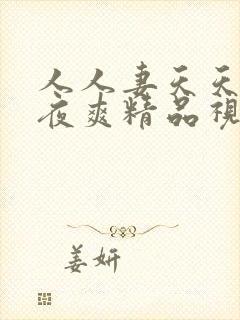 人人妻天天
夜爽精品視
姜妍